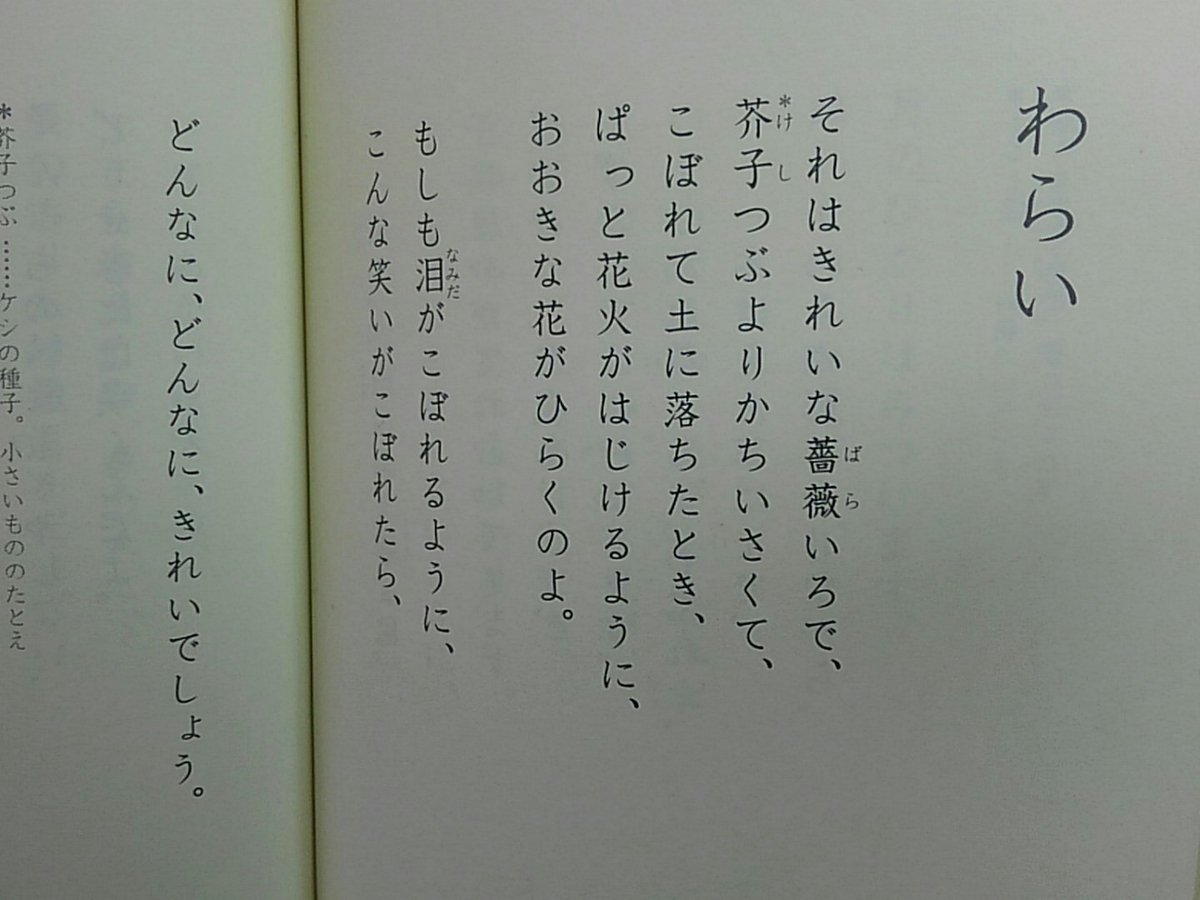 わらい
それはきれいな薔薇いろで、
芥子つぶよりかちいさくて、
こぼれて土に落ちたとき、
ぱっと花火がはじけるように、
おおきな花がひらくのよ。
もしも泪がこぼれるように、
こんな笑いがこぼれたら、
どんなに、どんなに、きれいでしょう。
*芥子つぶ……ケシの種子。小さいもののたとえ